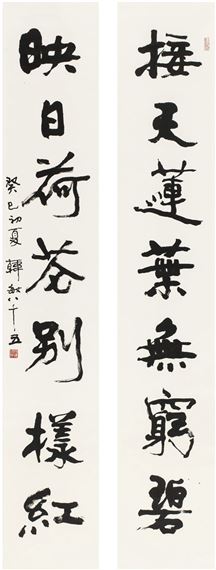 接天蓮葉無窮碧
映日荷花別樣紅
癸巳初夏韓敏八十五